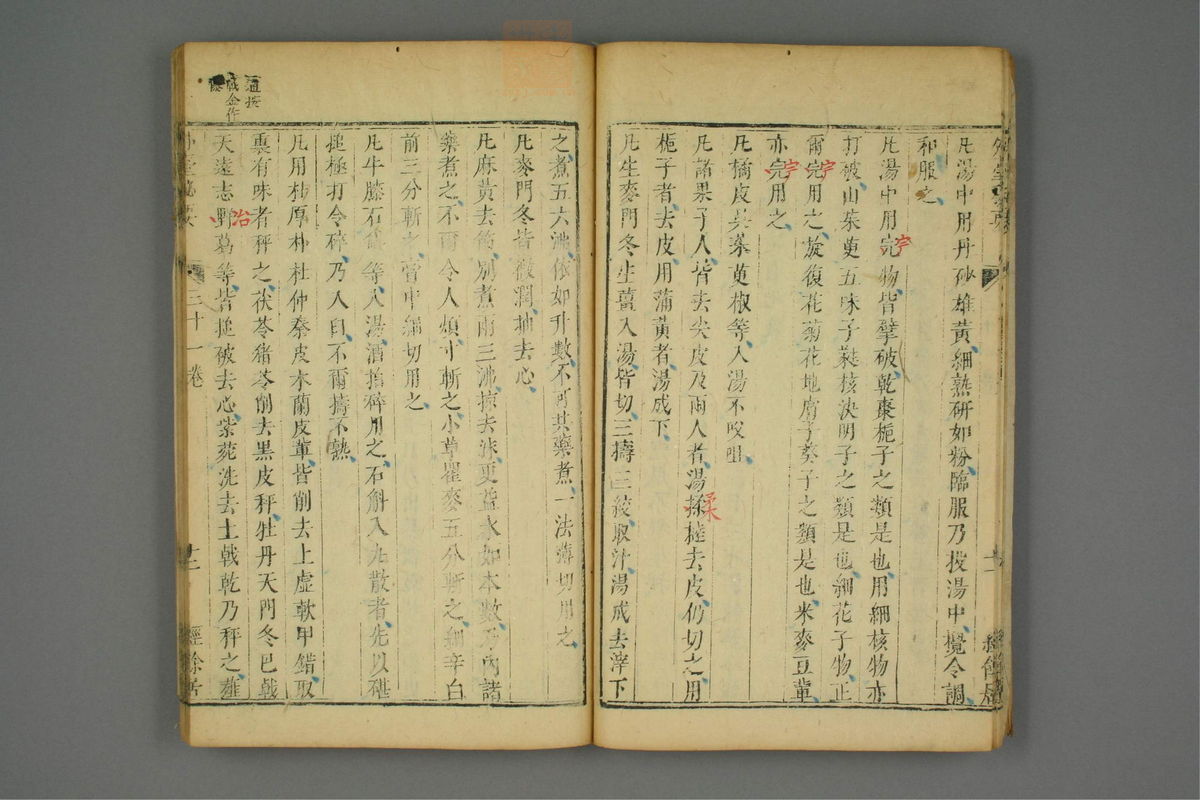 凡湯中用丹砂雄黃細熟研如粉臨服乃投湯中攪令調
和服之
凡湯中用完物皆擘破乾棗梔子之類是也用細核物亦
打破山茱萸五味子蕤核決明子之類是也細花子物正
爾完用之旋復花菊花地膚子葵子之類是也米麥豆輩
亦完用之
凡橘皮吳茱萸椒等入湯不㕮咀
凡諸果子人皆去尖皮及兩人者湯揉撻去皮仍切之用
梔子者去皮用蒲黃者湯成下
凡生麥門冬生薑入湯皆切三擣三絞取汁湯成去滓下
之煮五六沸依如升數不可共藥煮一法薄切用之
凡麥門冬皆微潤抽去心
凡麻黃去節別煮兩三沸掠去沫更益水如本數乃內諸
藥煮之不爾令人煩寸斬之小草瞿麥五分斬之細辛白
前三分斬之膏中細切用之
凡牛膝石斛等入湯酒搥碎用之石斛入丸散者先以碪
搥極打令碎乃入臼不爾擣不熟
凡用桂厚朴杜仲秦皮木蘭皮輩皆削去上虛軟甲錯取
裏有味者秤之茯苓豬苓削去黑皮秤牡丹天門冬巴戟
天遠志野葛等皆搥破去心紫菀洗去土戟乾乃秤之薤
三十一卷
經餘居